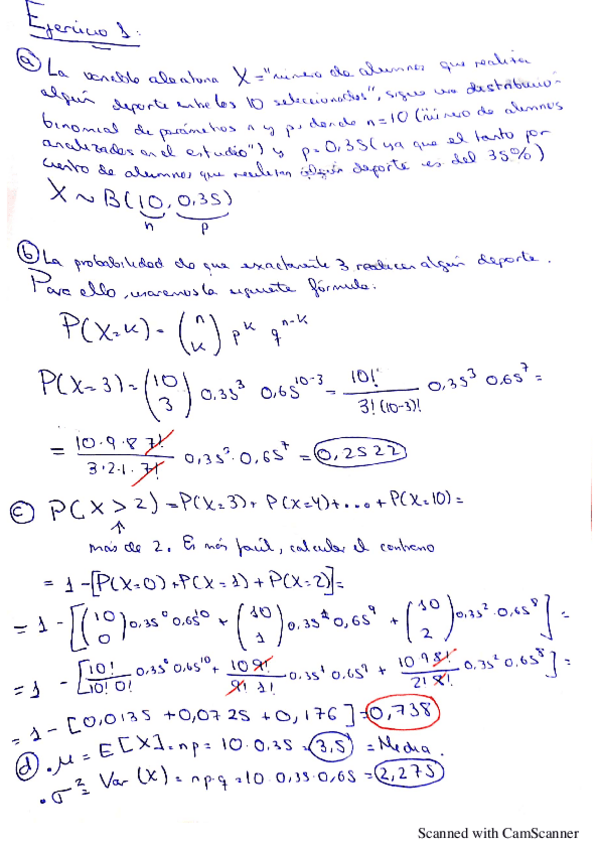 Ejercicio 1:
a) La variable aleatoria X = "número de alumnos que realizan
algún deporte entre los 10 seleccionados", sigue una distribución
binomial de parámetros n y p, donde n=10 (número de alumnos
analizados en el estudio") y p=0,35 (ya que el tanto por
ciento de alumnos que realizan algún deporte es del 35%)
X ~ B(10, 0,35)
n p
b) La probabilidad de que exactamente 3 realicen algún deporte.
Para ello, usaremos la siguiente fórmula:
P(X=k) = (n k) p^k q^(n-k)
P(X=3) = (10 3) 0,35^3 0,65^(10-3) = 10!/(3!(10-3)!) 0,35^3 0,65^7 =
= (10·9·8 7!)/(3·2·1·7!) 0,35^3·0,65^7 = 0,2522
c) P(X > 2) = P(X=3) + P(X=4) + ... + P(X=10) =
más de 2. Es más fácil, calcular el contrario
= 1 - [P(X=0) + P(X=1) + P(X=2)] =
= 1 - [(10 0) 0,35^0 0,65^10 + (10 1) 0,35^1 0,65^9 + (10 2) 0,35^2·0,65^8] =
= 1 - [10!/(10! 0!) 0,35^0 0,65^10 + (10 9!)/(9! 1!) 0,35^1 0,65^9 + (10 9 8!)/(2! 8!) 0,35^2 0,65^8] =
= 1 - [0,0135 + 0,0725 + 0,176] = 0,738
d) · μ = E[X] = np = 10·0,35 = 3,5 = Media.
· σ^2 = Var(X) = npq = 10·0,35·0,65 = 2,275
Scanned with CamScanner